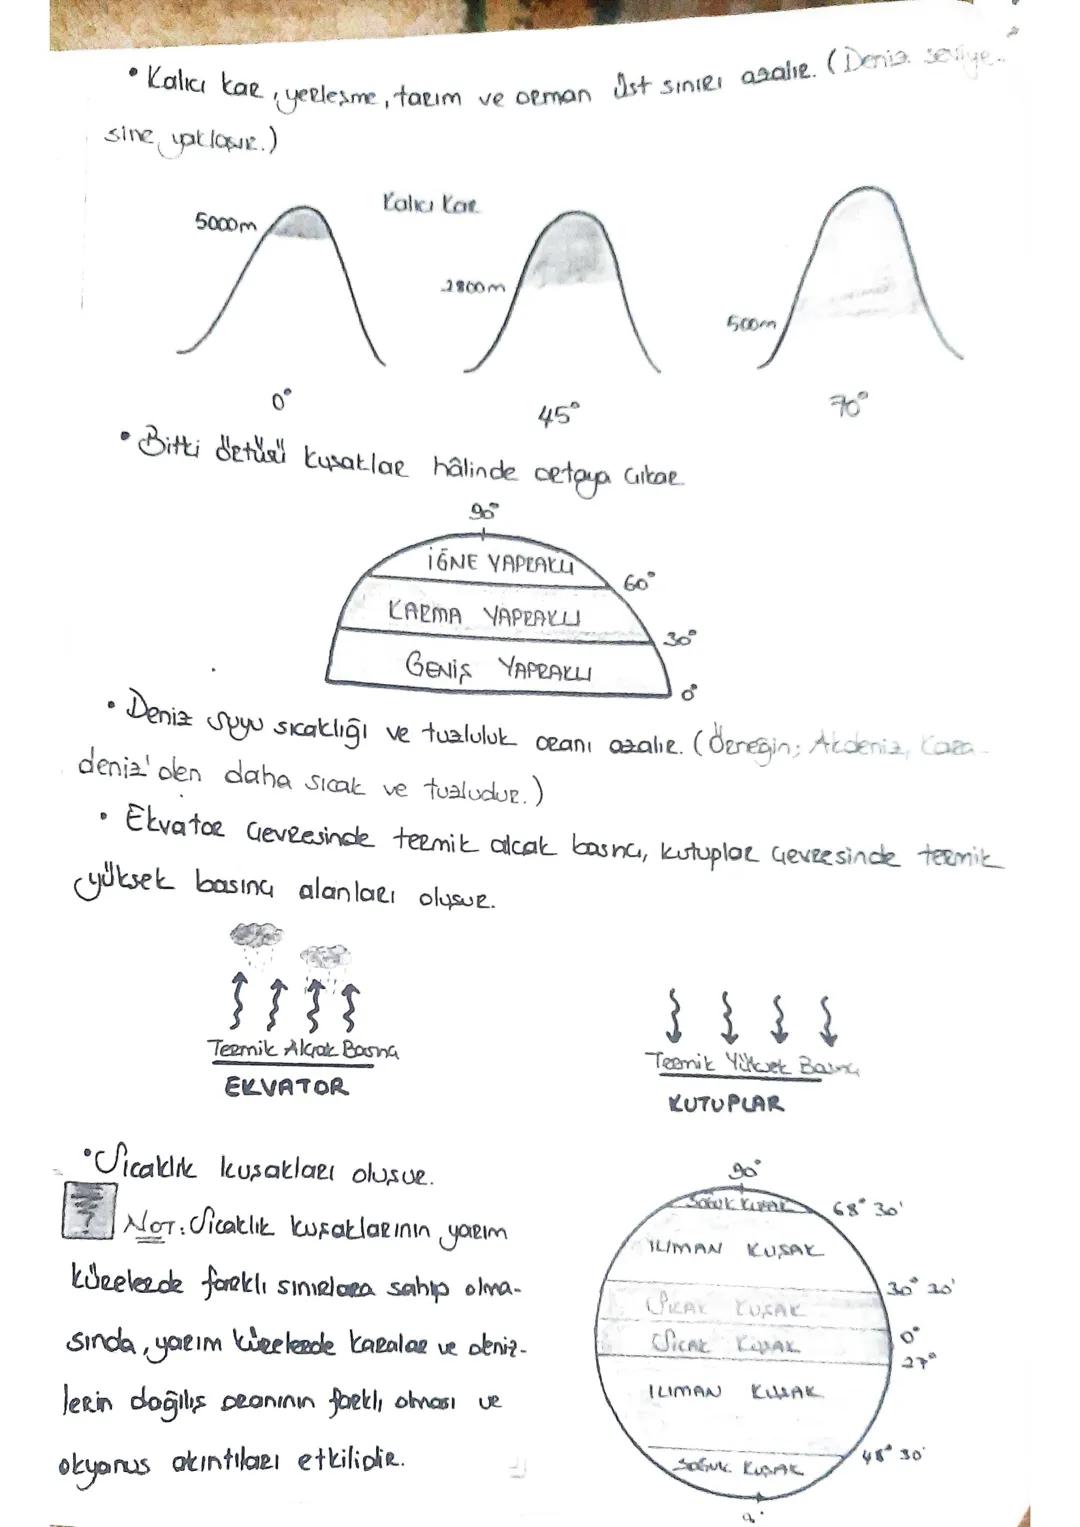 • Kalıcı kar, yerleşme, tarım ve orman üst sınırı azalır. (Deniz seviye-
sine yaklaşır.)
Kalıcı Kar
5000m
2800m
500m
0°
45°
70°
• Bitki örtüsü kuşaklar hâlinde ortaya çıkar
90°
İĞNE YAPRAKLI
60°
KARMA YAPRAKLI
30°
GENİŞ YAPRAKLI
0°
• Deniz suyu sıcaklığı ve tuzluluk oranı azalır. (Örneğin; Akdeniz, Kara-
deniz'den daha sıcak ve tuzludur.)
• Ekvator çevresinde termik alçak basınç, kutuplar çevresinde termik
yüksek basınç alanları oluşur.
Termik Alçak Basınç
EKVATOR
Termik Yüksek Basınç
KUTUPLAR
• Sıcaklık kuşakları oluşur.
NOT: Sıcaklık kuşaklarının yarım
kürelerde farklı sınırlara sahip olma-
sında, yarım kürelerde karalar ve deniz-
lerin dağılış oranının farklı olması ve
okyanus akıntıları etkilidir.
90°
SOĞUK KUŞAK
68° 30'
ILIMAN KUŞAK
30° 30'
SICAK KUŞAK
0°
SICAK KUŞAK
27°
ILIMAN KUŞAK
48° 30'
SOĞUK KUŞAK